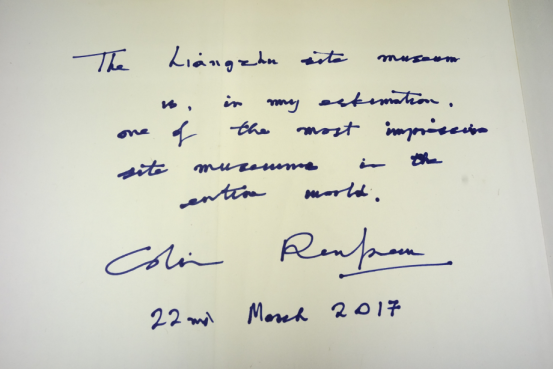 The Liangzhu site museum
is, in my estimation,
one of the most impressive
site museums in the
entire world.
Colin Renfrew
22nd March 2017